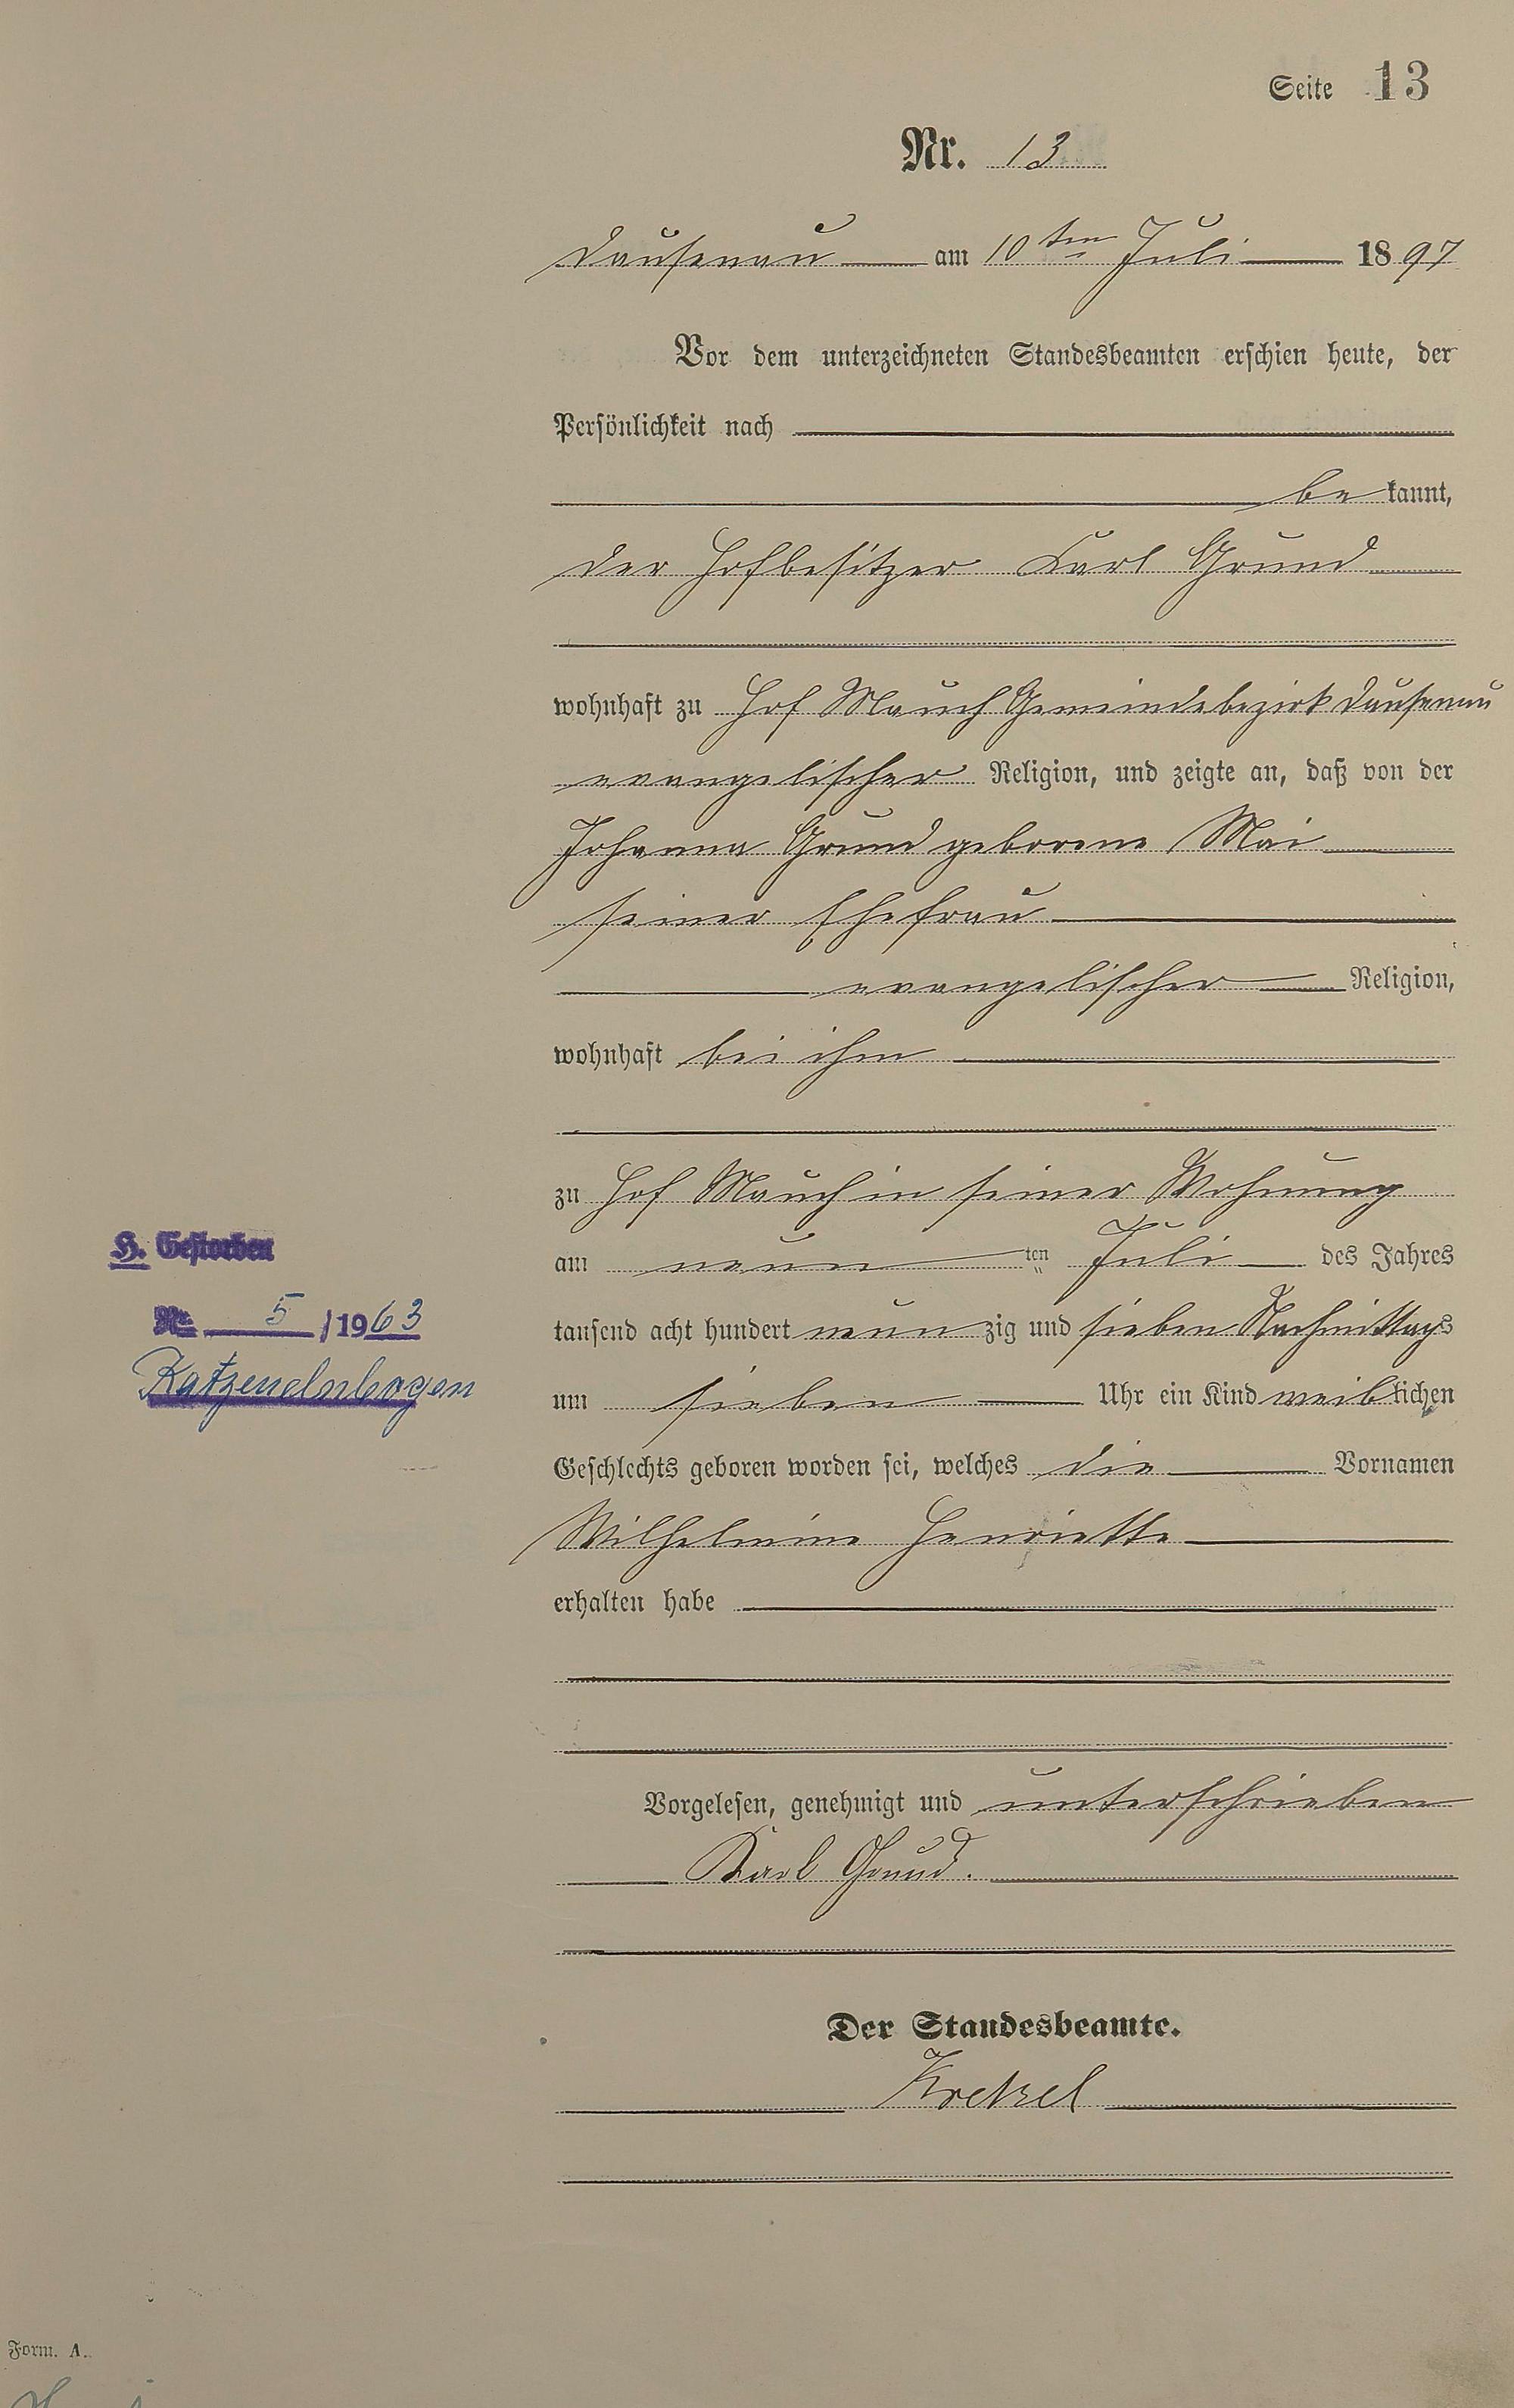 Seite 13
Nr. 13
Dausenau am 10ten Juli 1897
Vor dem unterzeichneten Standesbeamten erschien heute, der
Persönlichkeit nach
bekannt,
der Hofbesitzer Karl Grund
wohnhaft zu Hof Mauch Gemeindebezirk Dausenau
evangelischer Religion, und zeigte an, daß von der
Johanna Grund geborene Mai
seiner Ehefrau
evangelischer Religion,
wohnhaft bei ihm
zu Hof Mauch in seiner Wohnung
am neun ten Juli des Jahres
tausend acht hundert neunzig und sieben Nachmittags
um sieben Uhr ein Kind weiblichen
Geschlechts geboren worden sei, welches die Vornamen
Wilhelmine Henriette
erhalten habe
Vorgelesen, genehmigt und unterschrieben
Karl Grund.
Der Standesbeamte.
H. Gestorben
Nr. 5/1963
Katzenelnbogen
Form. A.